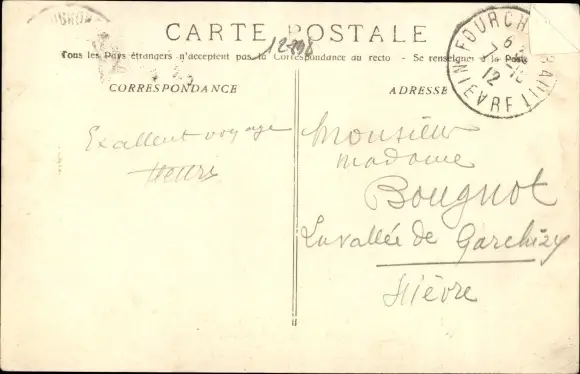 CARTE POSTALE
12-798
Tous les Pays étrangers n'acceptent pas la Correspondance au recto - Se renseigner à la Poste
CORRESPONDANCE
ADRESSE
FOURCH
NIÈVRE
12
Excellent voyage
Henri
Monsieur
Madame
Bougnot
La vallée de Garchizy
Nièvre